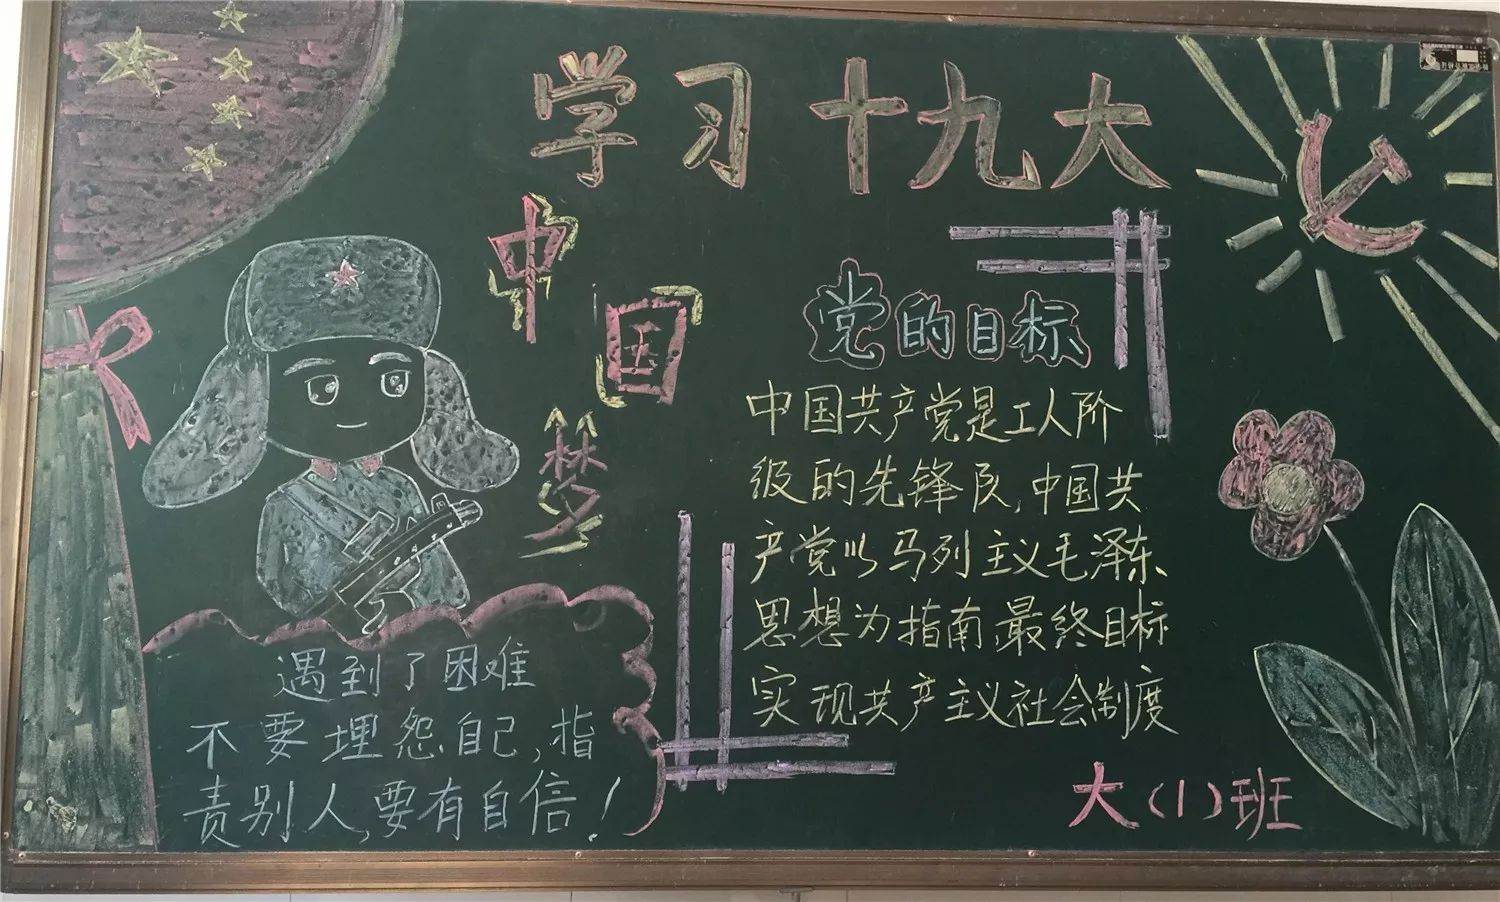 学习十九大
中国梦
党的目标
中国共产党是工人阶
级的先锋队,中国共
产党以马列主义毛泽东
思想为指南,最终目标
实现共产主义社会制度
遇到了困难
不要埋怨自己,指
责别人,要有自信!
大(1)班